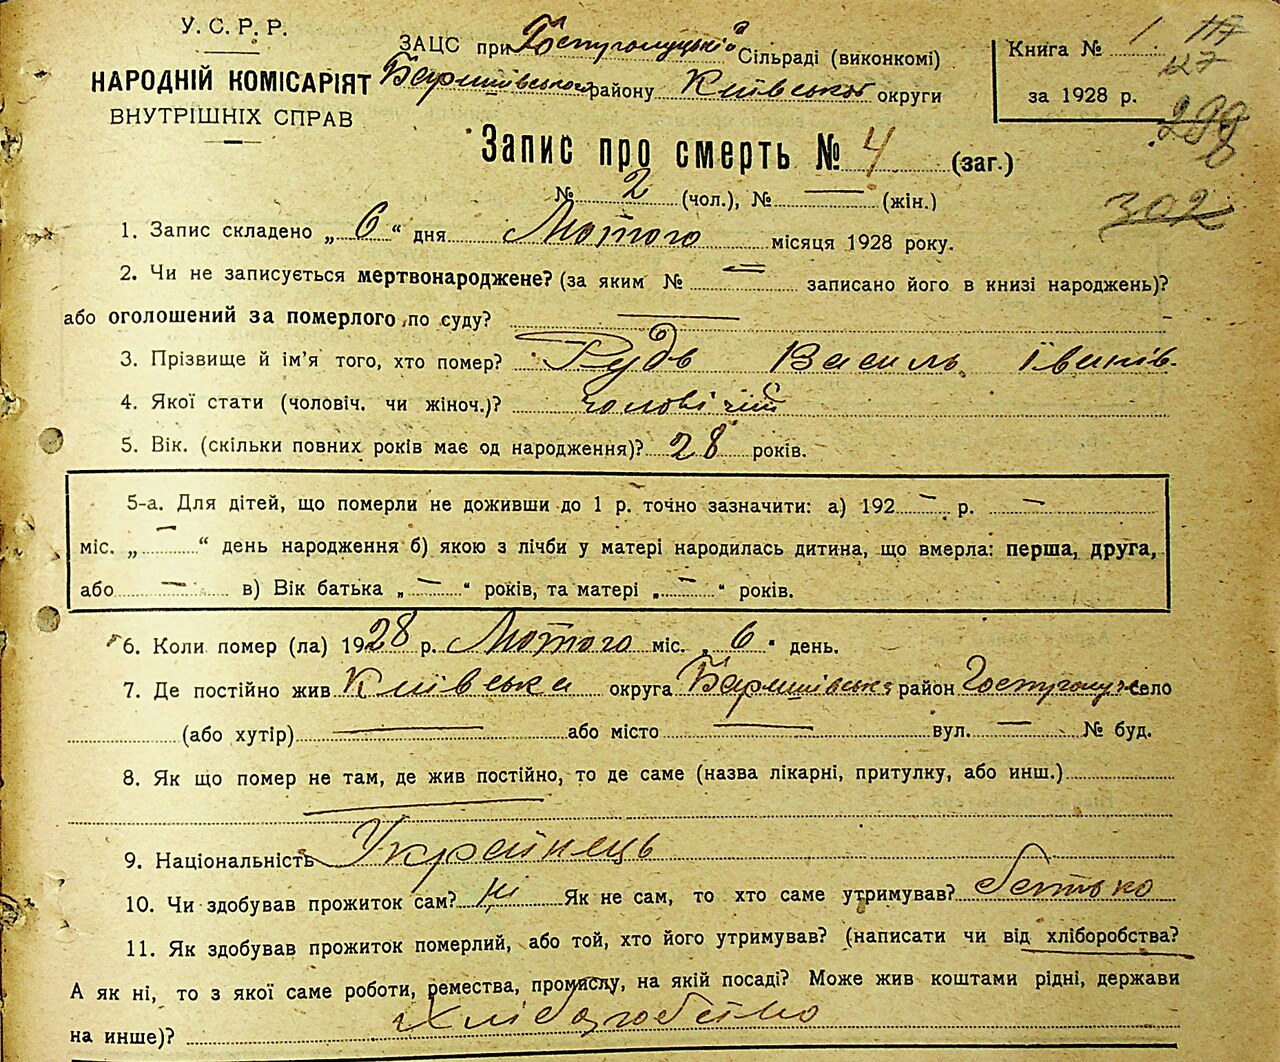 У. С. Р. Р.
НАРОДНІЙ КОМІСАРІЯТ
ВНУТРІШНІХ СПРАВ
ЗАЦС при Гостролуцькій Сільраді (виконкомі)
Баришівського району Київської округи
Книга № 1
за 1928 р.
117
127
299
302
Запис про смерть № 4 (заг.)
№ 2 (чол.), № — (жін.)
1. Запис складено „ 6 “ дня Лютого місяця 1928 року.
2. Чи не записується мертвонароджене? (за яким № — записано його в книзі народжень)?
або оголошений за померлого по суду? —
3. Прізвище й ім'я того, хто помер? Рудь Василь Іванів.
4. Якої стати (чоловіч. чи жіноч.)? чоловічій
5. Вік. (скільки повних років має од народження)? 28 років.
5-а. Для дітей, що померли не доживши до 1 р. точно зазначити: а) 192 — р. —
міс. „ — “ день народження б) якою з лічби у матері народилась дитина, що вмерла: перша, друга,
або — в) Вік батька „ — “ років, та матері „ — “ років.
6. Коли помер (ла) 1928 р. Лютого міс. „ 6 “ день.
7. Де постійно жив Київська округа Баришівськ район село
(або хутір) — або місто — вул. — № буд.
8. Як що помер не там, де жив постійно, то де саме (назва лікарні, притулку, або инш.)
—
9. Національність Українець
10. Чи здобував прожиток сам? ні Як не сам, то хто саме утримував? батько
11. Як здобував прожиток померлий, або той, хто його утримував? (написати чи від хліборобства?
А як ні, то з якої саме роботи, ремества, промислу, на якій посаді? Може жив коштами рідні, держави
на инше)? Хліборобство